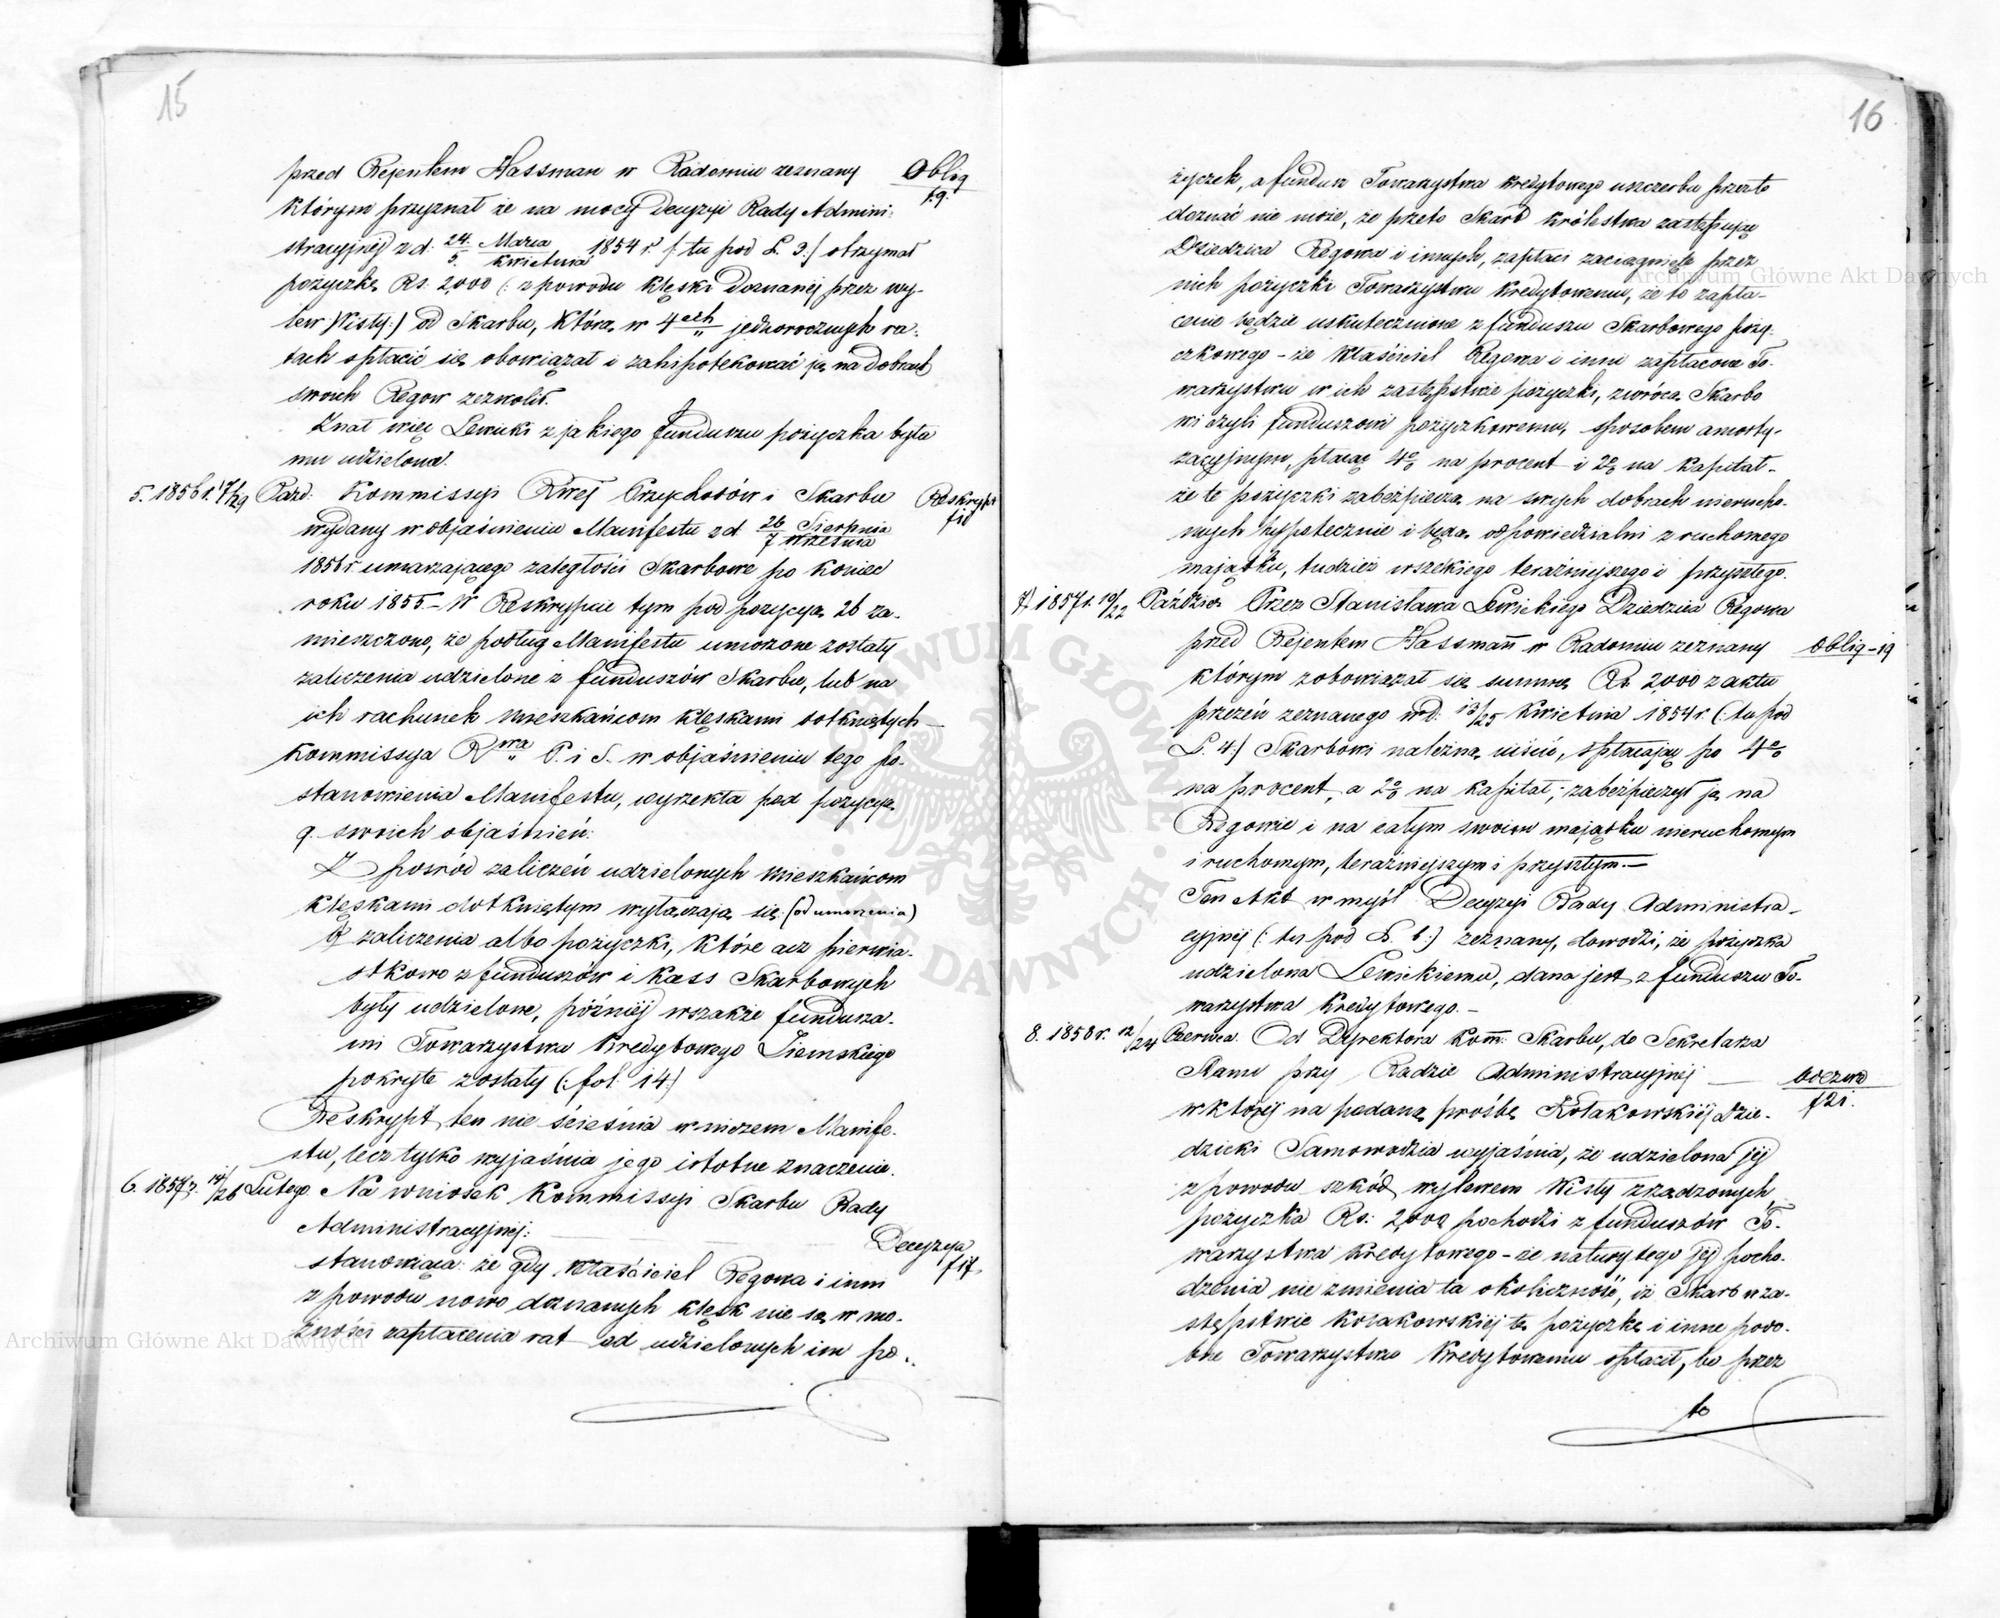 15
przed Rejentem Hassman w Radomiu zeznany Oblig
f.9.
którym przyznał że na mocy Decyzyi Rady Admini:
stracyjnéj z d: 24. Marca / 5. Kwietnia 1854 r. /: tu pod L. 3:/ otrzymał
pożyczkę Rs. 2,000 (: z powodu klęski doznanéj przez wy-
lew Wisły:) od Skarbu, którą w 4ech jednorocznych ra:
tach spłacić się obowiązał i zahipotekować ją na dobrach
swoich Regow zezwolił.
Znał więc Lewicki z jakiego funduszu pożyczka była
mu udzieloną.
5. 1856 r. 17/29 Pazd: Kommissyi Rwéj Przychodów i Skarbu Reskrypt
f10
wydany w objaśnieniu Manifestu z d 26 Sierpnia / 7 Września
1856 r. umarzającego zaległości Skarbowe po koniec
roku 1855 – W Reskrypcie tym pod pozycyą 26 za-
mieszczono, że podług Manifestu umorzone zostały
zaliczenia udzielone z funduszów Skarbu, lub na
ich rachunek mieszkańcom klęskami dotkniętych –
Kommissya Rwa P. i S. w objaśnieniu tego po-
stanowienia Manifestu, wyrzekła pod pozycyą
9. swoich objaśnień:
Z pośród zaliczeń udzielonych mieszkańcom
klęskami dotkniętym wyłączają się (od umorzenia)
zaliczenia albo pożyczki, które acz pierwia-
stkowo z funduszów i kass Skarbowych
były udzielone, późniéj wszakże fundusza-
mi Towarzystwa Kredytowego Ziemskiego
pokryte zostały (: fol. 14:)
Reskrypt ten nie ścieśnia w niczem Manife-
stu, lecz tylko wyjaśnia jego istotne znaczenie.
6. 1857 r. 14/26 Lutego Na wniosek Kommissyi Skarbu Rady
Administracyjnéj: Decyzya
f17.
stanowiąca: że gdy właściciel Regowa i inni
z powodu nowo doznanych klęsk nie są w mo-
żności zapłacenia rat od udzielonych im po-
16
życzek, a fundusz Towarzystwa Kredytowego uszczerbu przezto
doznać nie może, że przeto Skarb Królestwa zastępując
Dziedzica Regowa i innych, zapłaci zaciągnięte przez
nich pożyczki Towarzystwu Kredytowemu, że to zapła-
cenie będzie uskutecznione z funduszu Skarbowego poży-
czkowego – że właściciel Regowa i inni zapłacone To-
warzystwu w ich zastępstwie pożyczki, zwrócą Skarbo
wi czyli funduszowi pożyczkowemu, sposobem amorty-
zacyjnym, płacąc 4% na procent i 2% na kapitał –
że te pożyczki zabezpieczą na swych dobrach nierucho-
mych hypotecznie i będą odpowiedzialni z ruchomego
majątku, tudzież wszelkiego teraźniejszego i przyszłego.
7. 1857 r. 10/22 Paździer. Przez Stanisława Lewickiego Dziedzica Regowa
przed Rejentem Hassmann w Radomiu zeznany Oblig – 19
którym zobowiązał się summę Rs 2,000 z aktu
przezeń zeznanego w d: 13/25 Kwietnia 1854 r. (: tu pod
L. 4:) Skarbowi należną uiścić, spłacając po 4%
na procent, a 2% na kapitał; zabezpieczył ją na
Regowie i na całym swoim majątku nieruchomym
i ruchomym, teraźniejszym i przyszłym. –
Ten Akt w myśl Decyzyi Rady Administra-
cyjnéj (: tu pod L. 6:) zeznany, dowodzi, że pożyczka
udzielona Lewickiemu, dana jest z funduszu To-
warzystwa Kredytowego. –
8. 1858 r. 12/24 Czerwca. Od Dyrektora Kom: Skarbu, do Sekretarza
Stanu przy Radzie Administracyjnéj – odezwa
f21.
w któréj na podaną prośbę Kołakowskiéj Dzie-
dziczki Samowodzia wyjaśnia, że udzielona jéj
z powodu szkód wylewem Wisły zrządzonych
pożyczka Rs: 2,000 pochodzi z funduszów To-
warzystwa Kredytowego – że natury tego jéj pocho-
dzenia nie zmienia ta okoliczność, iż Skarb w za-
stępstwie Kołakowskiéj tę pożyczkę i inne podo-
bne Towarzystwu Kredytowemu spłacił, bo przez
to
Archiwum Główne Akt Dawnych
Archiwum Główne Akt Dawnych
ARCHIWUM GŁÓWNE AKT DAWNYCH